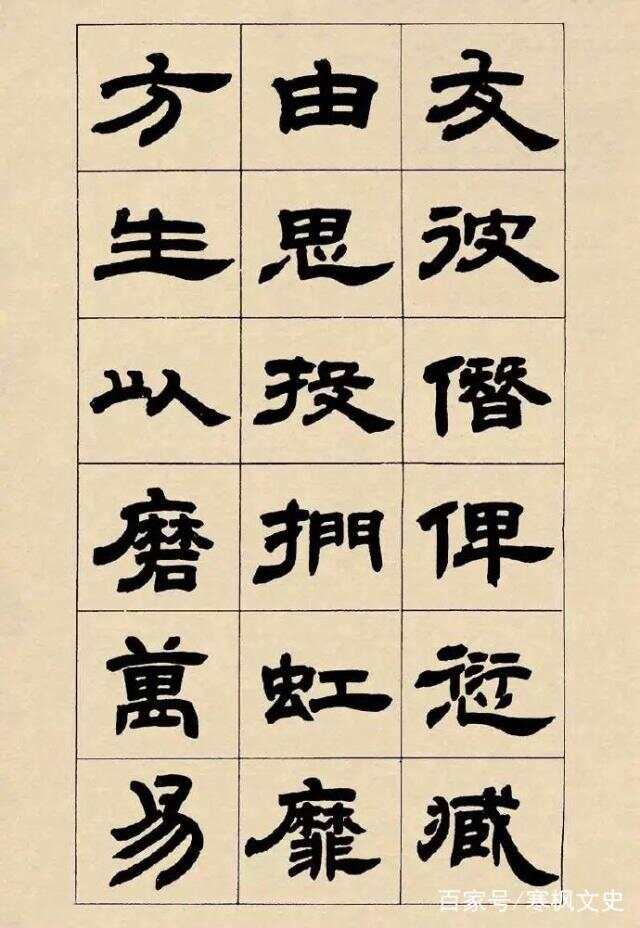 友彼僭俾愆臧
由思投捫虹靡
方生以磨萬易
百家号/寒枫文史